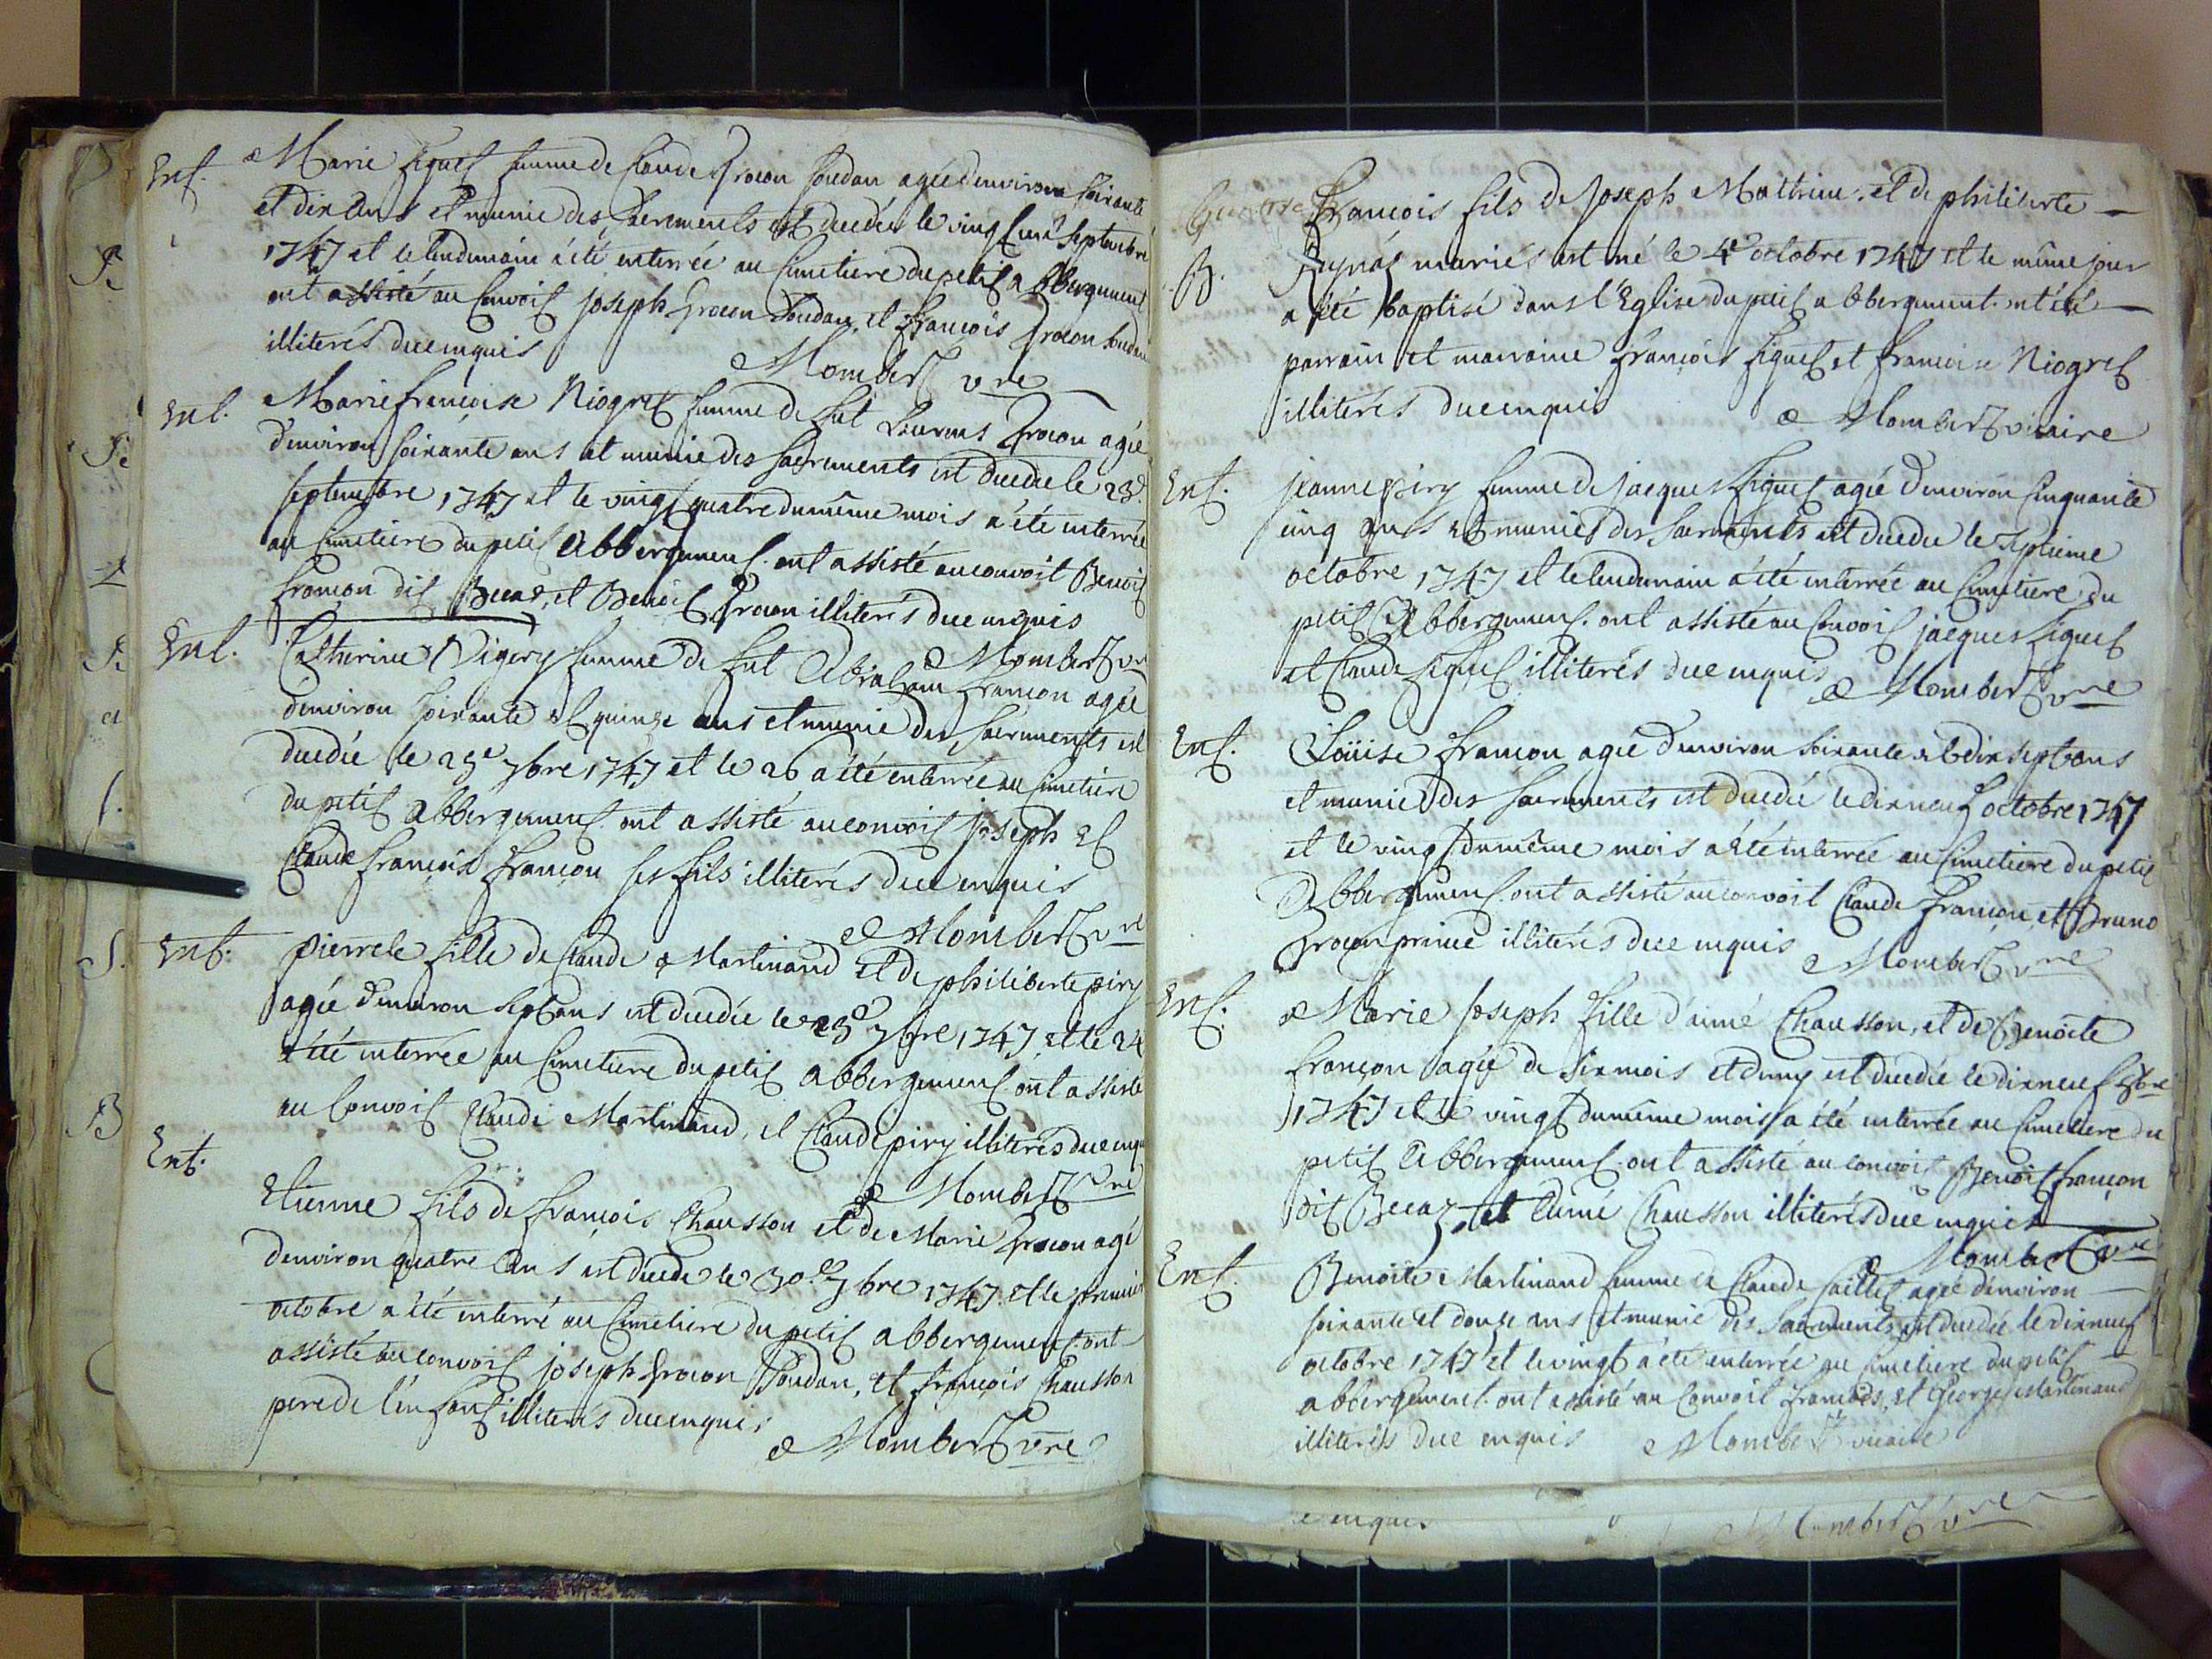 Ent. Marie Liguet femme de Claude Grocon Soudan agée d'environ soixante
et dix ans et munie des sacrements est decedée le vingt septembre
1747 et le lendemain a été enterrée au Cimetiere du petit abbergement
ont assisté au Convoit joseph Grocon Soudan, et françois Grocon Soudan
illiterés de ce enquis Mombert vre
Ent. Marie françoise Niogret femme de fut Laurens Grocon agée
d'environ soixante ans et munie des sacrements est decedée le 23e
septembre 1747 et le vingt quatre du même mois a été enterrée
au Cimetiere du petit Abbergement. ont assisté au convoit Benoit
françon dit Becaz, et Benoit Grocon illiterés de ce enquis
Mombert vre
Ent. Catherine Vigery femme de fut Abraham françon agée
d'environ soixante et quinze ans et munie des sacrements est
decedée le 25e 7bre 1747 et le 26 a été enterrée au Cimetiere
du petit Abbergement ont assisté au convoit joseph et
Claude françois françon ses fils illiterés de ce enquis
Mombert vre
Ent. pierrete fille de Claude Martinand et de philiberte piry
agée d'environ sept ans est decedée le 23e 7bre 1747, et le 24
a été enterrée au Cimetiere du petit abbergement ont assisté
au Convoit Claude Martinand, et Claude piry illiterés de ce enquis
Mombert vre
Ent. Etienne fils de françois Chausson et de Marie Grocon agé
d'environ quatre ans est decedé le 30e 7bre 1747 et le premier
octobre a été enterré au Cimetiere du petit abbergement. ont
assisté au convoit joseph Grocon Soudan, et françois Chausson
pere de l'enfant illiterés de ce enquis
Mombert vre
françois fils de joseph Mathieu et de philiberte
B. mariés est né le 4e octobre 1747 et le même jour
a été baptisé dans l'Eglise du petit abbergement. ont été
parrain et marraine françois Liguet et françoise Niogret
illiterés de ce enquis Mombert vicaire
Ent. jeanne piry femme de jacques Liguet agée d'environ cinquante
cinq ans et munie des sacrements est decedée le septieme
octobre 1747 et le lendemain a été enterrée au Cimetiere du
petit Abbergement. ont assisté au Convoit jacques Liguet
et Claude Liguet illiterés de ce enquis
Mombert vre
Ent. Loüise françon agée d'environ soixante et dix sept ans
et munie des sacrements est decedée le dixneuf octobre 1747
et le vingt du même mois a été enterrée au Cimetiere du petit
Abbergement. ont assisté au convoit Claude françon, et Bruno
Grocon prince illiterés de ce enquis Mombert vre
Ent. Marie joseph fille d'aimé Chausson, et de Benoite
françon agée de six mois et demy est decedée le dixneuf 8bre
1747 et le vingt du même mois a été enterrée au Cimetiere du
petit Abbergement. ont assisté au convoit Benoit françon
dit Becaz, et Aimé Chausson illiterés de ce enquis
Mombert vre
Ent. Benoite Martinand femme de Claude agée d'environ
soixante et douze ans et munie des sacrements est decedée le dixneuf
octobre 1747 et le vingt a été enterrée au cimetiere du petit
abbergement. ont assisté au Convoit françois, et George Martinand
illiterés de ce enquis Mombert vicaire
ce enquis Mombert vre